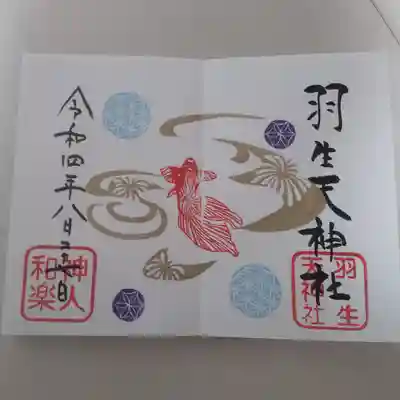 羽生天神社
羽生
天神社
令和四年八月
神人
和楽